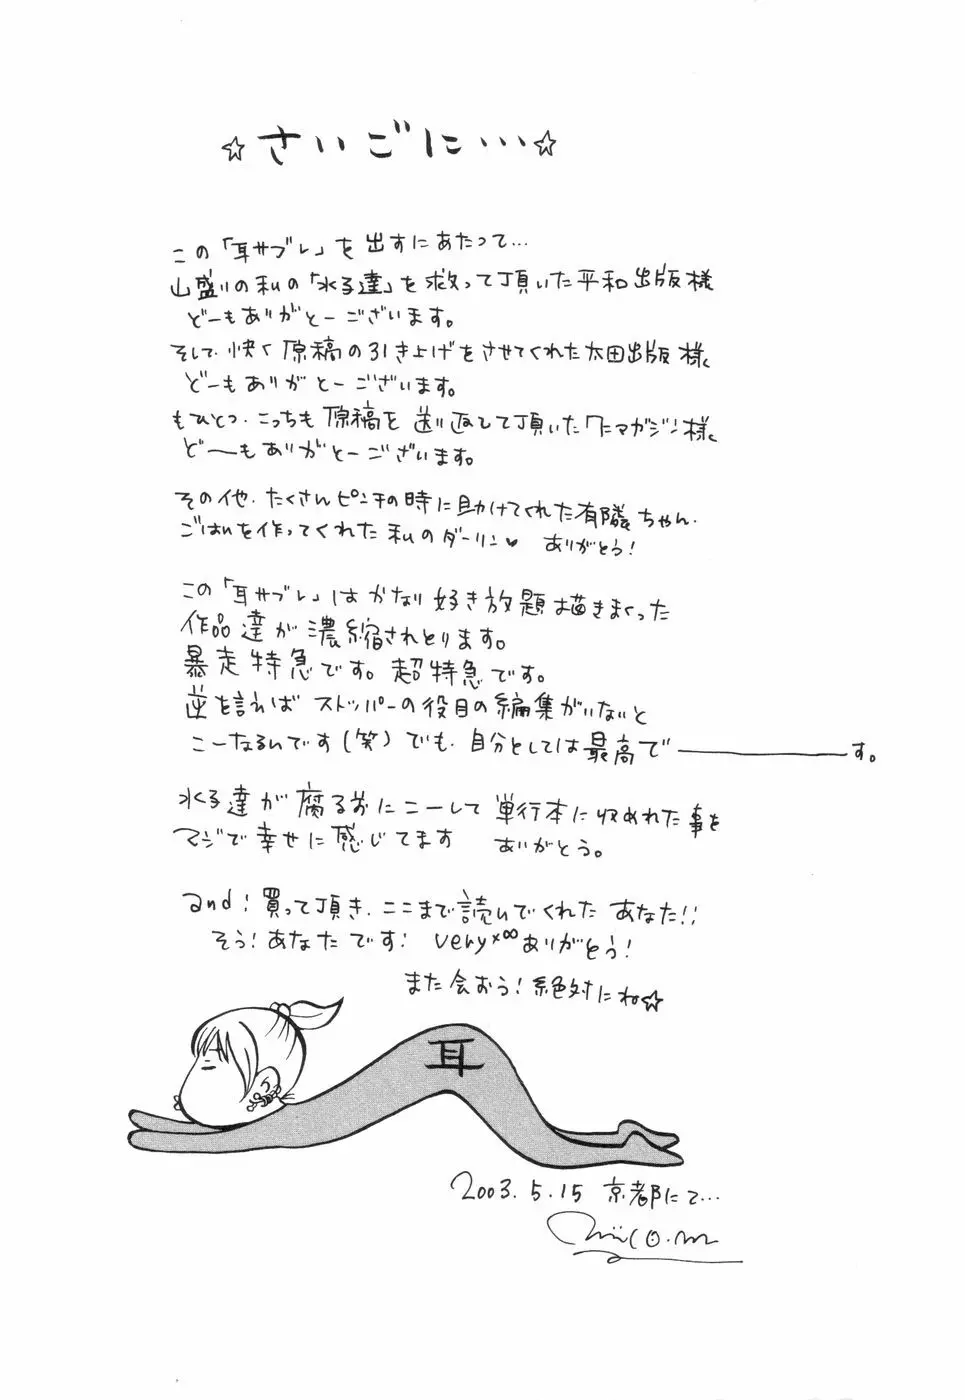 ☆さいごに…☆
この「耳サブレ」を出すにあたって…
山盛りの私の「水子達」を救って頂いた平和出版様
どーもありがとーございます。
そして、快く原稿の引き上げをさせてくれた太田出版様、
どーもありがとーございます。
もひとつ、こっちも原稿を送り返して頂いた マガジン様、
ど〜もありがとーございます。
その他、たくさんピンチの時に助けてくれた有隣ちゃん、
ごはんを作ってくれた私のダーリン♥ ありがとう!
この「耳サブレ」はかなり好き放題描きまくった
作品達が濃縮されとります。
暴走特急です。超特急です。
逆を言えば ストッパーの役目の編集がいないと
こーなるんです(笑)でも、自分としては最高で―――――す。
水子達が腐る前にこーして単行本に収めれた事を
マジで幸せに感じてます ありがとう。
and!買って頂き、ここまで読んでくれた あなた!!
そう!あなたです! very×∞ありがとう!
また会おう!絶対にね☆
耳
2003.5.15 京都にて…